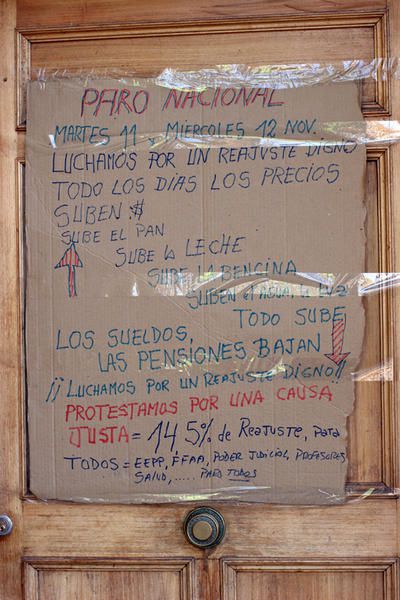 PARO NACIONAL
MARTES 11 y MIERCOLES 12 NOV.
LUCHAMOS POR UN REAJUSTE DIGNO
TODO LOS DIAS LOS PRECIOS
SUBEN:$
SUBE EL PAN
SUBE LA LECHE
SUBE LA BENCINA
SUBEN el AGUA, LA LUZ
TODO SUBE
LOS SUELDOS,
LAS PENSIONES BAJAN
¡¡LUCHAMOS POR UN REAJUSTE DIGNO!!
PROTESTAMOS POR UNA CAUSA
JUSTA = 14,5% de REAJUSTE, PARA
TODOS = EEPP, FFAA, PODER JUDICIAL, PROFESORES
SALUD, ..... PARA TODOS